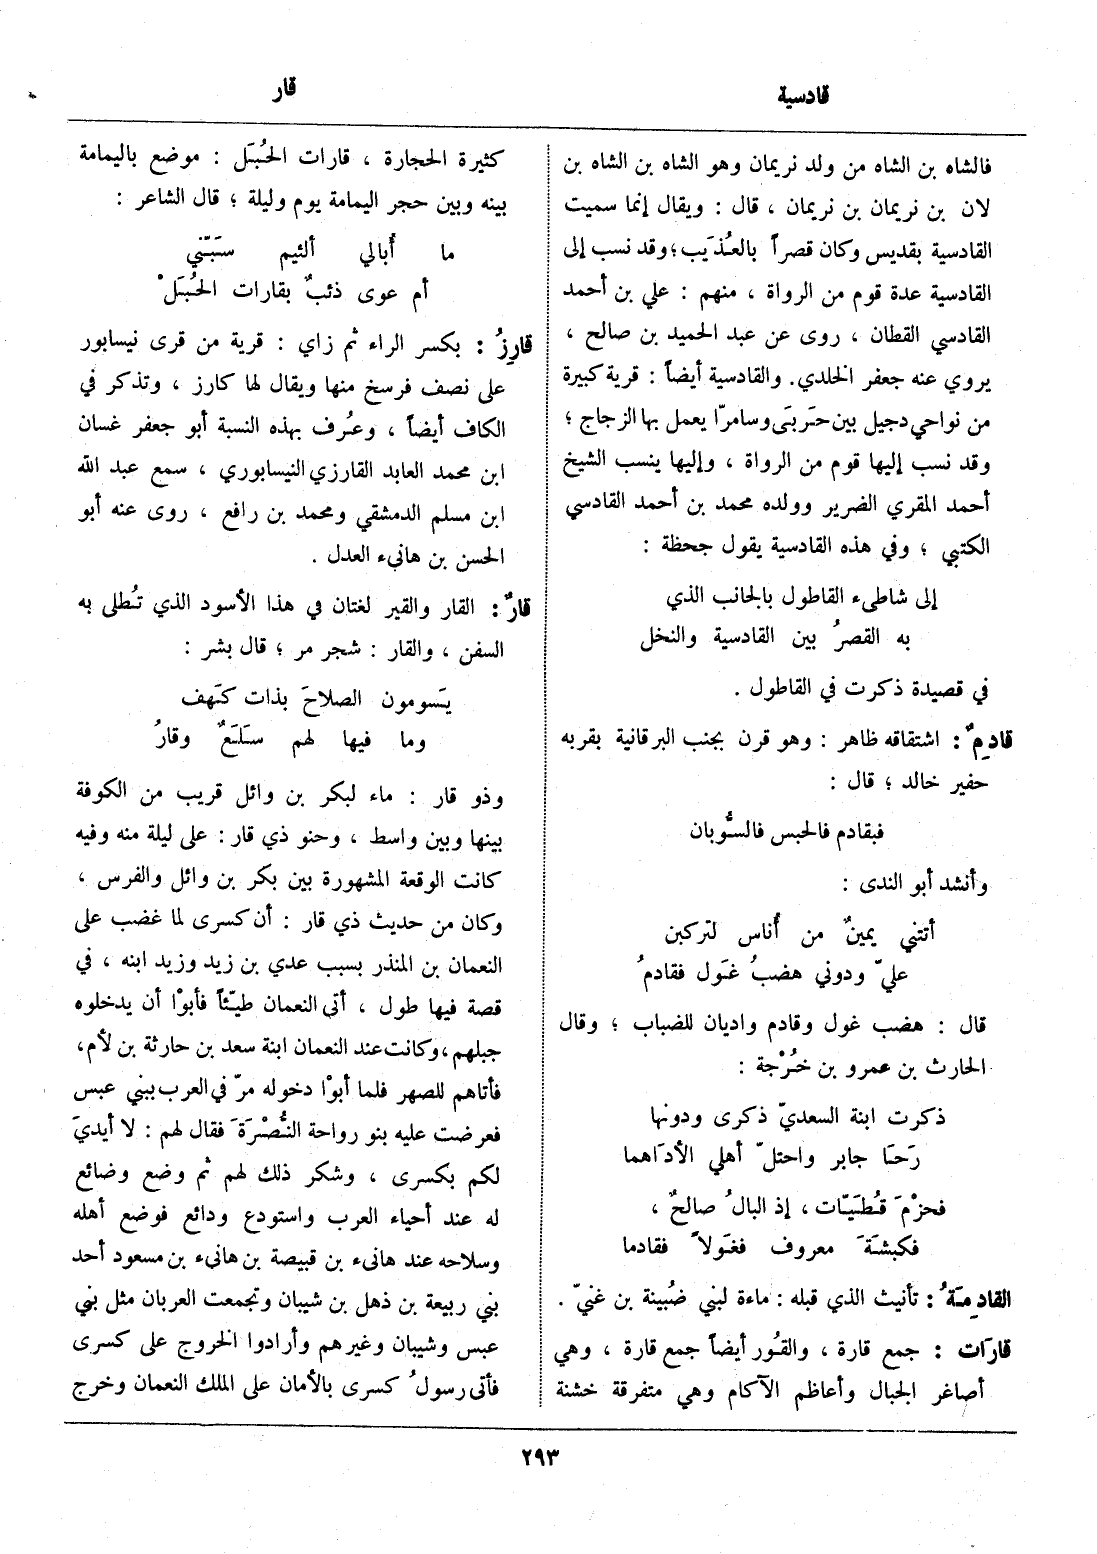 قادسية
قار
فالشاه بن الشاه من ولد نريمان وهو الشاه بن الشاه بن
لان بن نريمان بن نريمان ، قال : ويقال إنما سميت
القادسية بقديس وكان قصراً بالعُذَيب ؛ وقد نسب إلى
القادسية عدة قوم من الرواة ، منهم : علي بن أحمد
القادسي القطان ، روى عن عبد الحميد بن صالح ،
يروي عنه جعفر الخلدي. والقادسية أيضاً : قرية كبيرة
من نواحي دجيل بين حَربَى وسامرّا يعمل بها الزجاج ؛
وقد نسب إليها قوم من الرواة ، وإليها ينسب الشيخ
أحمد المقري الضرير وولده محمد بن أحمد القادسي
الكتبي ؛ وفي هذه القادسية يقول جحظة :
إلى شاطىء القاطول بالجانب الذي
به القصرُ بين القادسية والنخل
في قصيدة ذكرت في القاطول .
قادِمٌ : اشتقاقه ظاهر : وهو قرن بجنب البرقانية بقربه
حفير خالد ؛ قال :
فبقادم فالحبس فالسُّوبان
وأنشد أبو الندى :
أتتني يمينٌ من أُناس لتركبن
عليّ ودوني هضبُ غَول فقادمُ
قال : هضب غول وقادم واديان للضباب ؛ وقال
الحارث بن عمرو بن خُرْجة :
ذكرت ابنة السعديّ ذكرى ودونها
رَحَا جابر واحتلّ أهلي الأداهما
فحزْمَ قُطَيّات ، إذ البالُ صالحٌ ،
فكبشةَ معروف فغَولاً فقادما
القادِمَةُ : تأنيث الذي قبله : ماءة لبني ضُبينة بن غنيّ .
قارَات : جمع قارة ، والقُور أيضاً جمع قارة ، وهي
أصاغر الجبال وأعاظم الآكام وهي متفرقة خشنة
كثيرة الحجارة ، قارات الحُبَل : موضع باليمامة
بينه وبين حجر اليمامة يوم وليلة ؛ قال الشاعر :
ما أُبالي ألئيم سَبّني
أم عوى ذئبٌ بقارات الحُبَلْ
قارِزُ : بكسر الراء ثم زاي : قرية من قرى نيسابور
على نصف فرسخ منها ويقال لها كارز ، وتذكر في
الكاف أيضاً ، وعُرف بهذه النسبة أبو جعفر غسان
ابن محمد العابد القارزي النيسابوري ، سمع عبد الله
ابن مسلم الدمشقي ومحمد بن رافع ، روى عنه أبو
الحسن بن هانىء العدل .
قارٌ : القار والقير لغتان في هذا الأسود الذي تُطلى به
السفن ، والقار : شجر مر ؛ قال بشر :
يَسومون الصلاحَ بذات كَهف
وما فيها لهم سَلَعٌ وقارُ
وذو قار : ماء لبكر بن وائل قريب من الكوفة
بينها وبين واسط ، وحنو ذي قار : على ليلة منه وفيه
كانت الوقعة المشهورة بين بكر بن وائل والفرس ،
وكان من حديث ذي قار : أن كسرى لما غضب على
النعمان بن المنذر بسبب عدي بن زيد وزيد ابنه ، في
قصة فيها طول ، أتى النعمان طيّئاً فأبوْا أن يدخلوه
جبلهم ، وكانت عند النعمان ابنة سعد بن حارثة بن لأم،
فأتاهم للصهر فلما أبوْا دخوله مرّ في العرب ببني عبس
فعرضت عليه بنو رواحة النُّصْرَةَ فقال لهم : لا أيديَ
لكم بكسرى ، وشكر ذلك لهم ثم وضع وضائع
له عند أحياء العرب واستودع ودائع فوضع أهله
وسلاحه عند هانىء بن قبيصة بن هانىء بن مسعود أحد
بني ربيعة بن ذهل بن شيبان وتجمعت العربان مثل بني
عبس وشيبان وغيرهم وأرادوا الخروج على كسرى
فأتى رسولُ كسرى بالأمان على الملك النعمان وخرج
٢٩٣